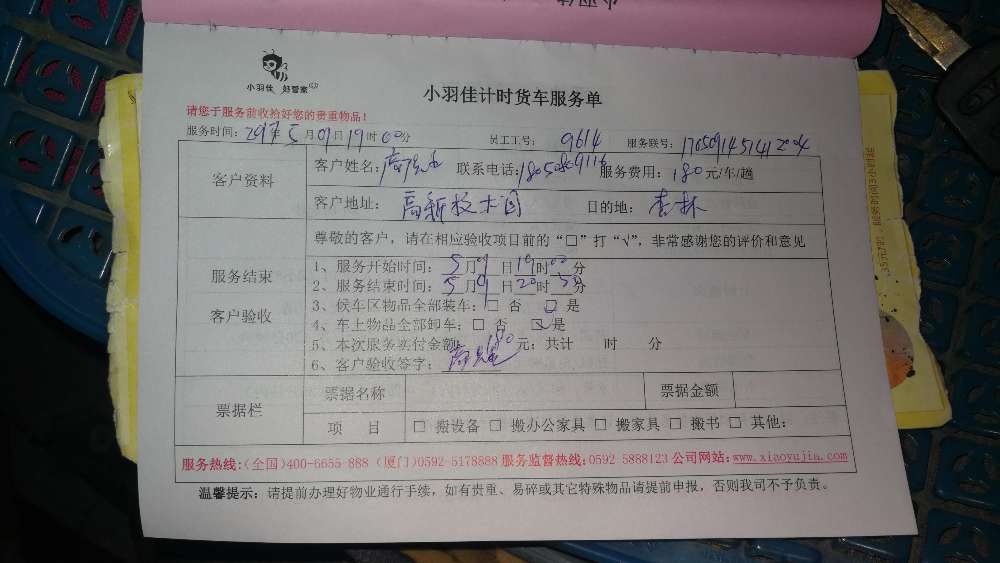 小羽佳 好管家
小羽佳计时货车服务单
请您于服务前收拾好您的贵重物品!
服务时间: 2017年5月09日19时00分 员工工号: 9614 服务联号:
客户资料
客户姓名: 联系电话: 服务费用: 180元/车/趟
客户地址: 高新技术园 目的地: 杏林
尊敬的客户，请在相应验收项目前的“□”打“√”，非常感谢您的评价和意见
服务结束
客户验收
1、服务开始时间: 5月9日19时00分
2、服务结束时间: 5月9日20时50分
3、候车区物品全部装车: □ 否 □ 是
4、车上物品全部卸车: □ 否 ☑ 是
5、本次服务实付金额: 180元; 共计 时 分
6、客户验收签字:
票据栏
票据名称 票据金额
项 目 □ 搬设备 □ 搬办公家具 □ 搬家具 □ 搬书 □ 其他:
服务热线:(全国)400-6655-888 (厦门)0592-5178588 服务监督热线:0592-5888123 公司网站:www.xiaoyujia.com
温馨提示: 请提前办理好物业通行手续，如有贵重、易碎或其它特殊物品请提前申报，否则我司不予负责。